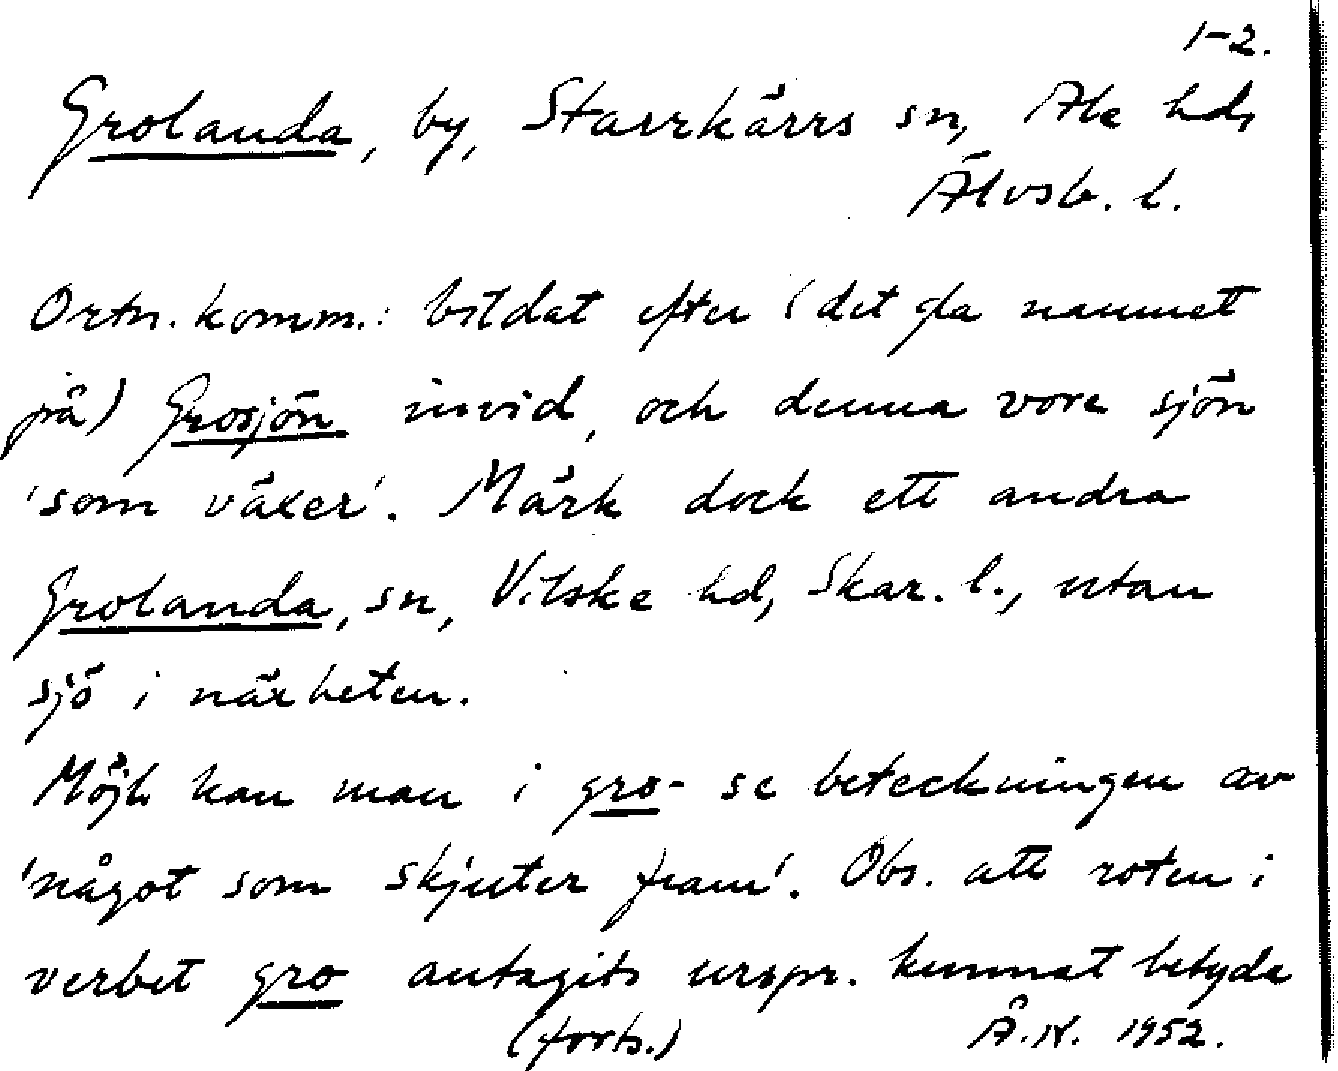 1-2.
Grolanda, by, Starrkärrs sn, Ale hd,
Älvsb. l.
Ortn.komm.: bildat efter (det gla namnet
på) Grosjön invid, och denna vore sjön
'som växer'. Märk dock ett andra
Grolanda, sn, Vilske hd, Skar. l., utan
sjö i närheten.
Möjl. kan man i gro- se beteckningen av
'något som skjuter fram'. Obs. att roten i
verbet gro antagits urspr. kunnat betyda
(forts.) Å.N. 1952.